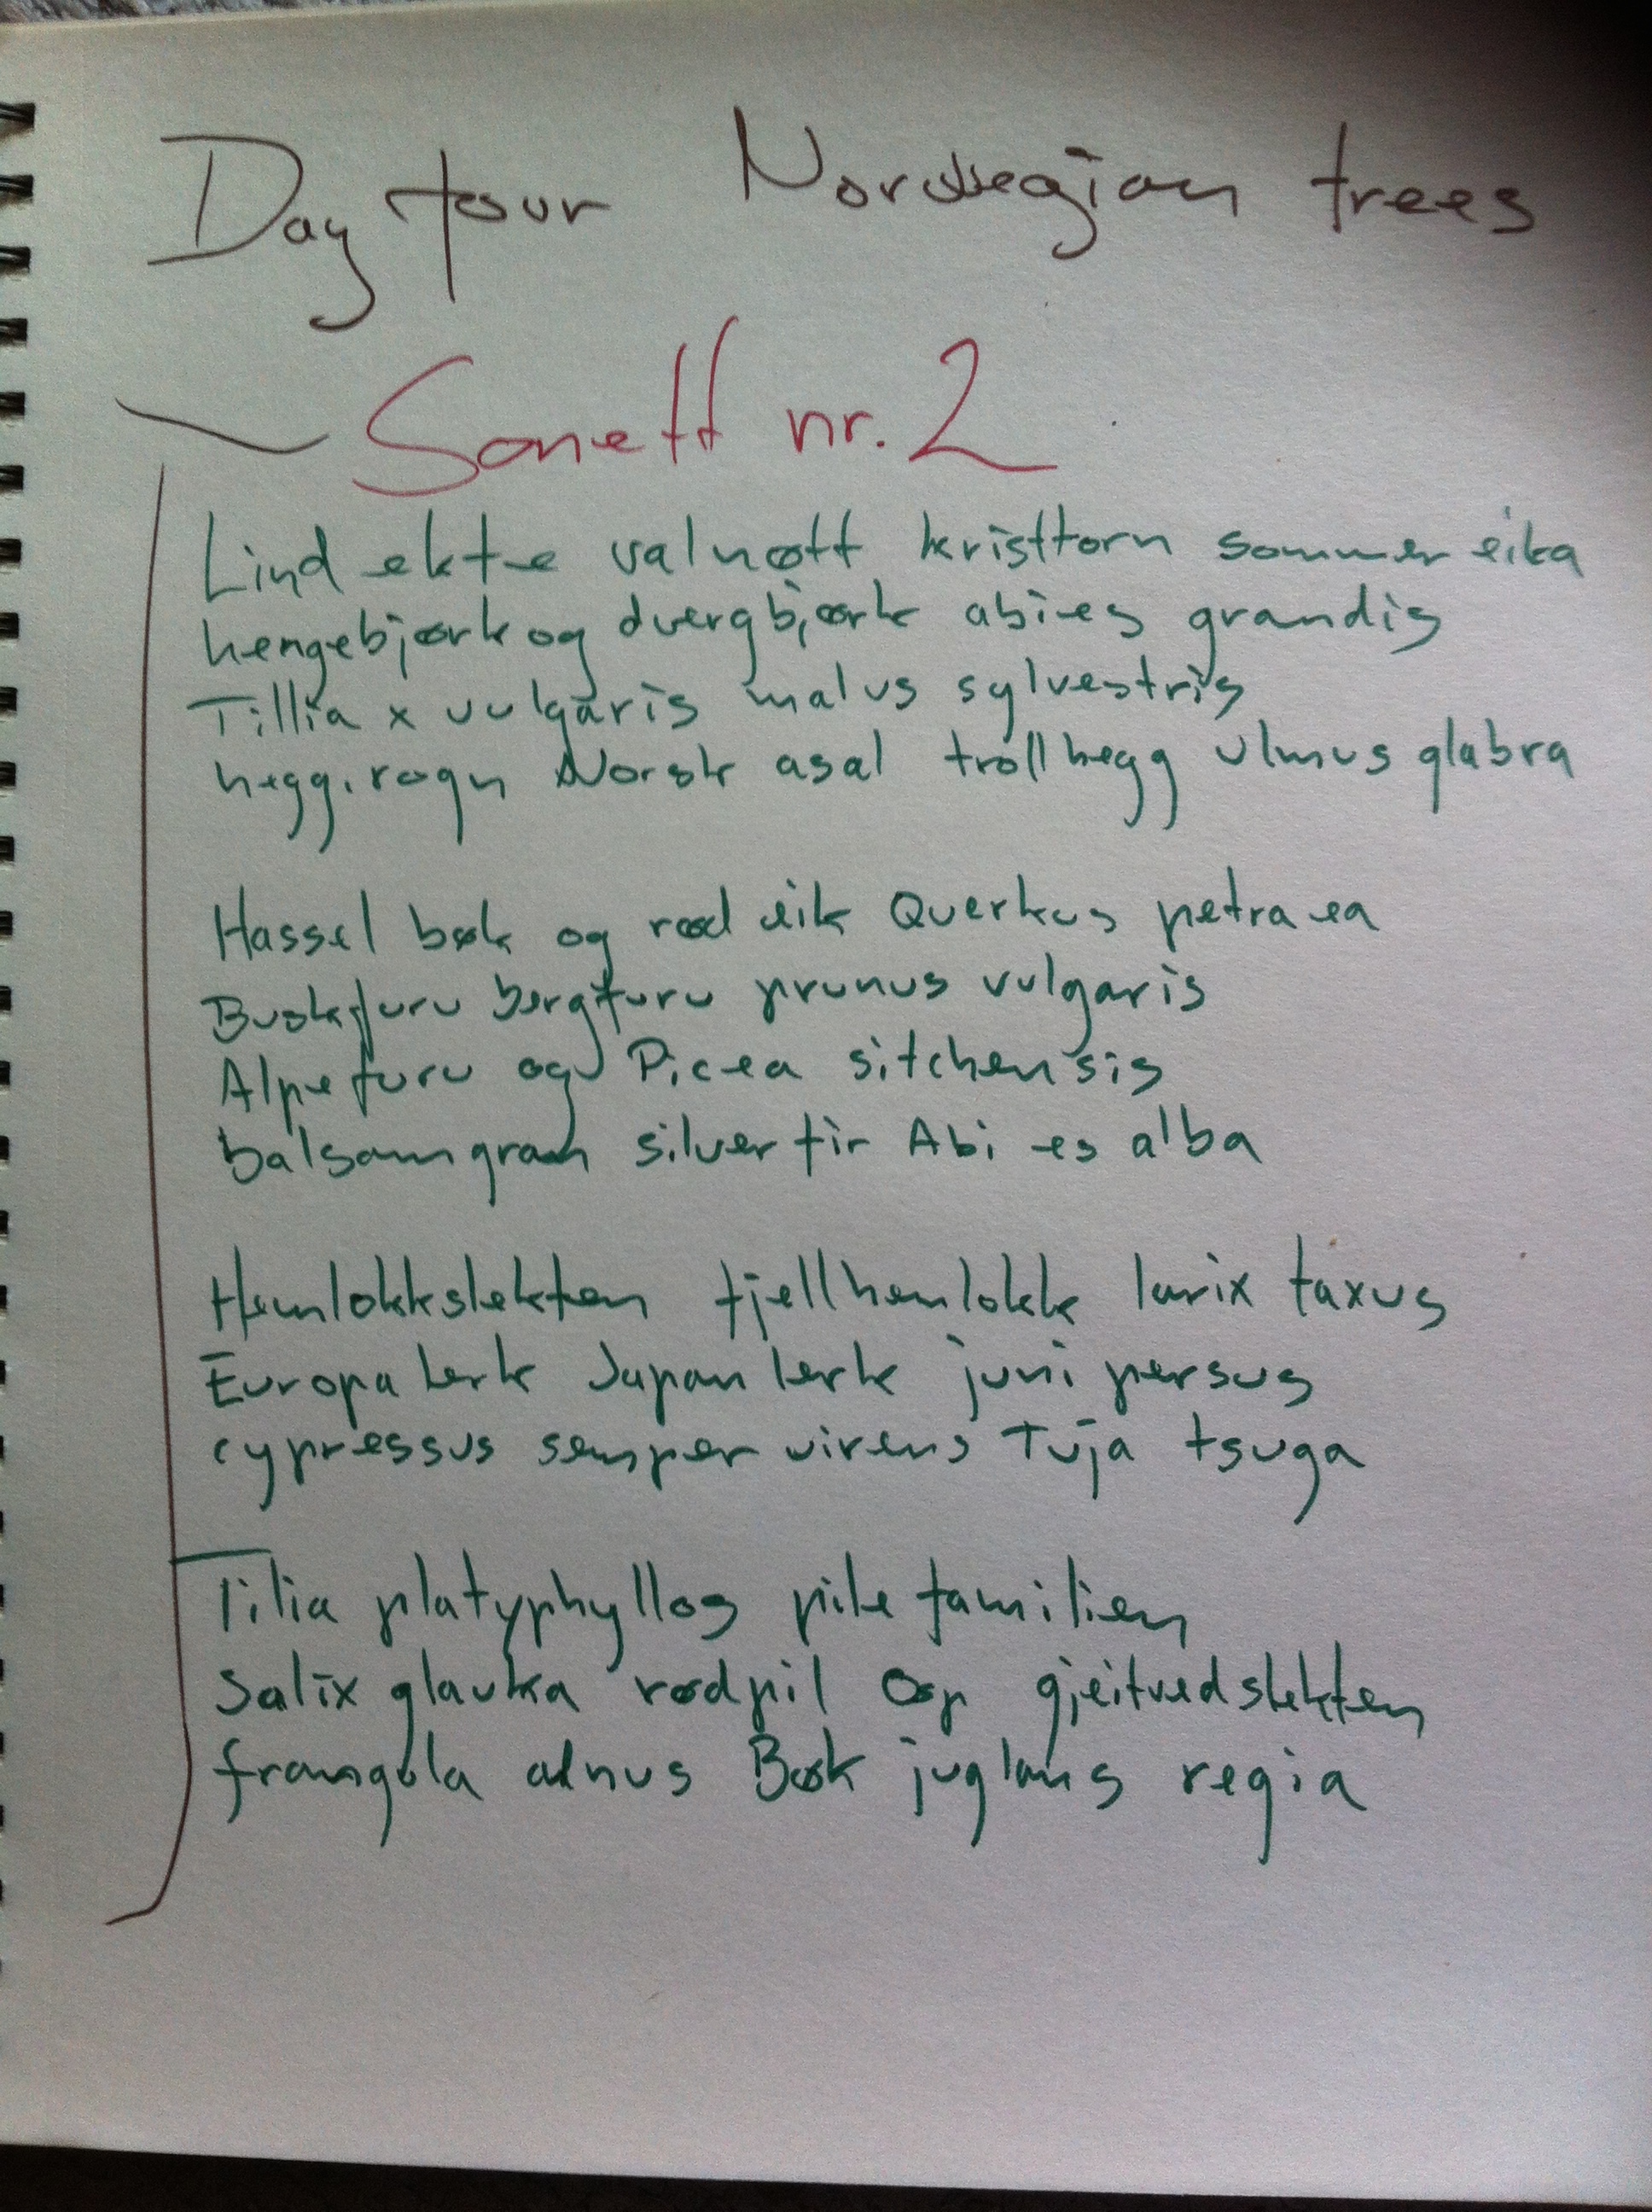 Day tour Norwegian trees
Sonett nr. 2
Lind ekte valnøtt kristtorn sommereika
hengebjørk og dvergbjørk abies grandis
Tillia x vulgaris malus sylvestris
hegg. rogn Norsk asal trollhegg ulmus glabra
Hassel bøk og rød eik Querkus petraea
Buskfuru bergfuru prunus vulgaris
Alpefuru og Picea sitchensis
balsamgran silver fir Abies alba
Hemlokkslekten fjellhemlokk larix taxus
Europa lerk Japan lerk junipersus
cypressus sempervirens Tuja tsuga
Tilia platyphyllos pilefamilien
Salix glauka rødpil Osp gjeitvedslekten
frangola alnus Bøk juglans regia